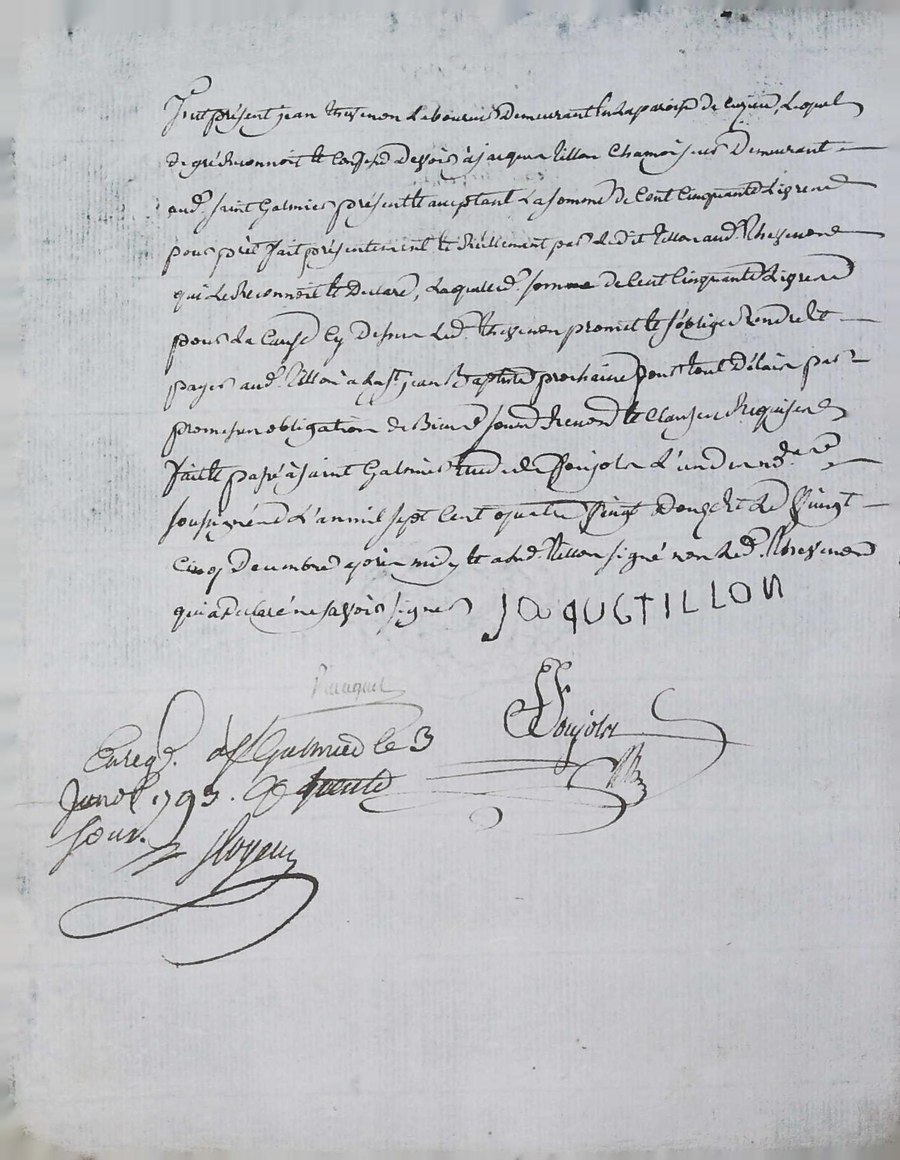 Fut présent jean Theznon Laboureur Demeurant En La paroisse de Cuzieu, Lequel
de gré Reconnoit Et Confesse Devoir à jacque Tillon Chamoiseur Demeurant
aud. saint Galmier présent Et acceptant La somme De Cent Cinquante Livres
pour prêt fait présentement Et Réellement par Ledit Tillon aud. Thezenon
qui Le Reconnoit Et Déclare, Laquelle d. somme de Cent Cinquante Livres
pour La Cause Cy Dessus Led. Thezenon promet Et s'oblige Rendre Et
payer aud. Tillon a La st. jean Baptiste prochaine pour tout Délais par
promesse obligation de Biens soumis Renon Et Clauses Requises
fait Et passé à saint Galmier Etude de Poujols L'un des no.res
soussignés L'an mil sept Cent quatre Vingt Douze Et Le Vingt
Cinq Décembre après midy Et a Led. Tillon signé non Led. Thezenon
qui a Déclaré ne savoir signer JAQUGTILLON
Poujols
Enreg. à st Galmier le 3
1793. R trente
sous.